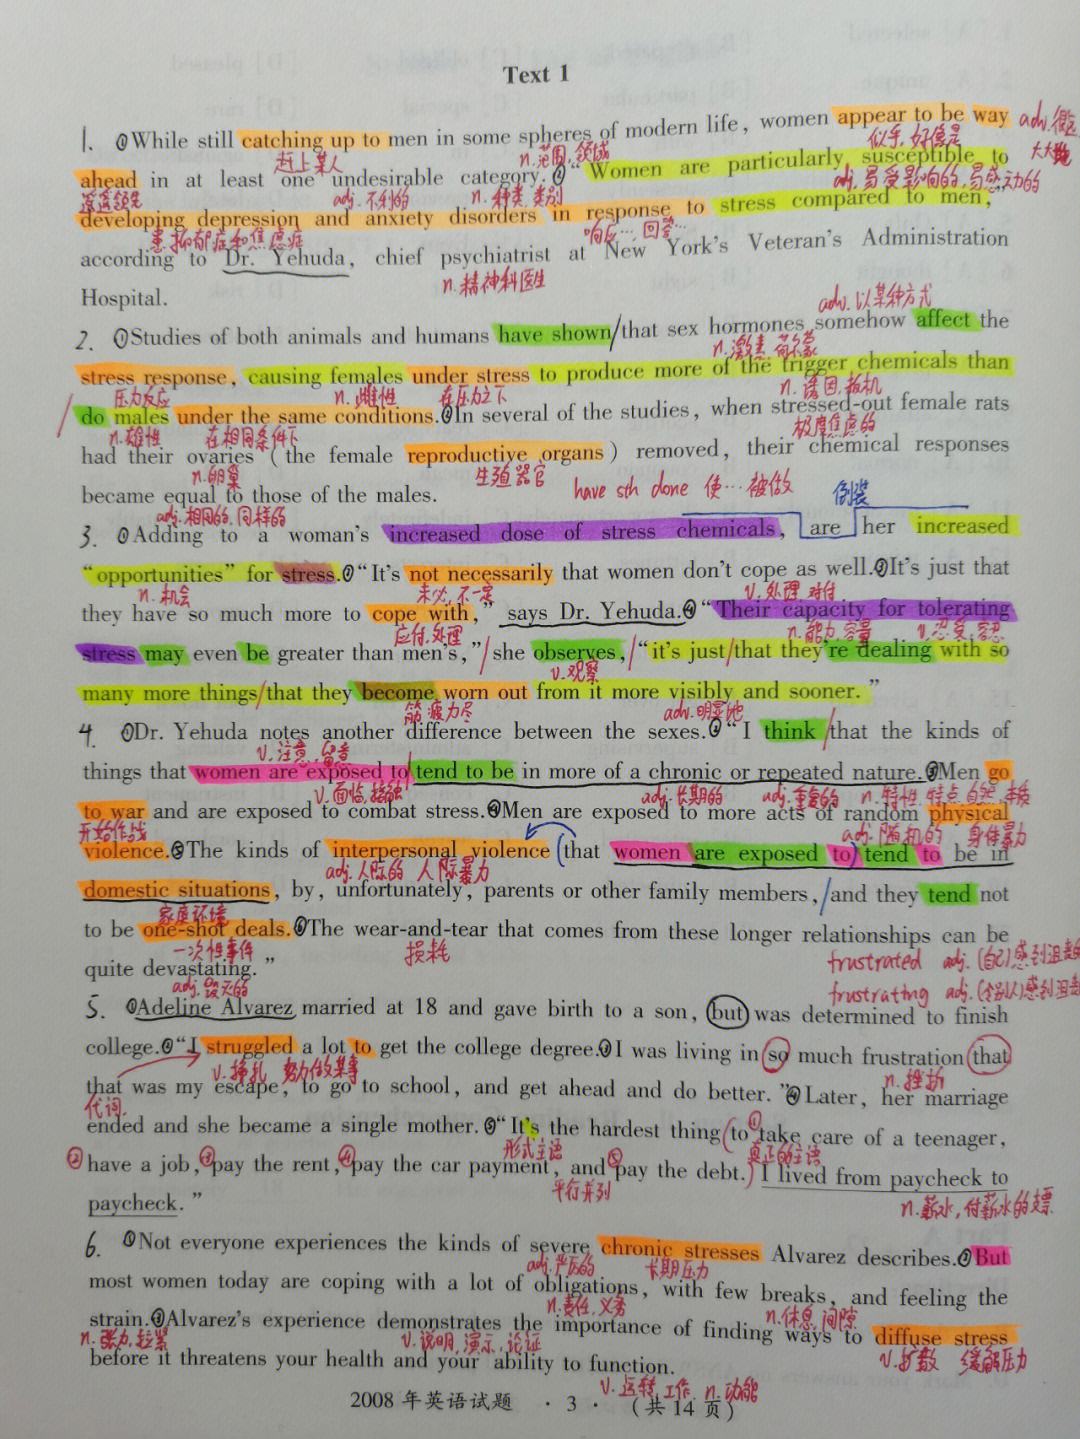 Text 1
1. ①While still catching up to men in some spheres of modern life, women appear to be way adv.
赶上某人 n.范围,领域 似乎,好像是 大大地
ahead in at least one undesirable category.②“Women are particularly susceptible to
遥遥领先 adj.不利的 n.种类,类别 adj.易受影响的,易感动的
developing depression and anxiety disorders in response to stress compared to men,”
患抑郁症和焦虑症 响应…,回答…
according to Dr. Yehuda, chief psychiatrist at New York’s Veteran’s Administration
n.精神科医生
Hospital.
adv.以某种方式
2. ①Studies of both animals and humans have shown/that sex hormones somehow affect the
n.激素 荷尔蒙
stress response, causing females under stress to produce more of the trigger chemicals than
压力反应 n.雌性 在压力之下 n.诱因,扳机
do males under the same conditions.②In several of the studies, when stressed-out female rats
n.雄性 在相同条件下 极度焦虑的
had their ovaries (the female reproductive organs) removed, their chemical responses
n.卵巢 生殖器官
became equal to those of the males. have sth done 使…被做 倒装
adj.相同的,同样的
3. ①Adding to a woman’s increased dose of stress chemicals, are her increased
“opportunities” for stress.②“It’s not necessarily that women don’t cope as well.③It’s just that
n.机会 未必,不一定 v.处理 对付
they have so much more to cope with,” says Dr. Yehuda.④“Their capacity for tolerating
应付,处理 n.能力,容量 v.忍受,容忍
stress may even be greater than men’s,”/she observes,/“it’s just/that they’re dealing with so
v.观察
many more things/that they become worn out from it more visibly and sooner.”
筋疲力尽 adv.明显地
4. ①Dr. Yehuda notes another difference between the sexes.②“I think/that the kinds of
v.注意,留意
things that women are exposed to/tend to be in more of a chronic or repeated nature.③Men go
v.面临,接触 adj.长期的 adj.重复的 n.特性,特点,自然,本质
to war and are exposed to combat stress.④Men are exposed to more acts of random physical
开始作战 adj.随机的 身体暴力
violence.⑤The kinds of interpersonal violence (that women are exposed to) tend to be in
adj.人际的 人际暴力
domestic situations, by, unfortunately, parents or other family members,/and they tend not
家庭环境
to be one-shot deals.⑥The wear-and-tear that comes from these longer relationships can be
一次性事件 损耗 frustrated adj.(自己)感到沮丧的
quite devastating.”
adj.毁灭的 frustrating adj.(令别人)感到沮丧
5. ①Adeline Alvarez married at 18 and gave birth to a son, but was determined to finish
college.②“I struggled a lot to get the college degree.③I was living in so much frustration that
v.挣扎 努力做某事 n.挫折
that was my escape, to go to school, and get ahead and do better.”④Later, her marriage
代词.
ended and she became a single mother.⑤“It’s the hardest thing (to ①take care of a teenager,
形式主语 真正的主语
②have a job,③pay the rent,④pay the car payment, and ⑤pay the debt.) I lived from paycheck to
平行并列 n.薪水,付薪水的支票
paycheck.”
6. ①Not everyone experiences the kinds of severe chronic stresses Alvarez describes.②But
adj.严厉的 长期压力
most women today are coping with a lot of obligations, with few breaks, and feeling the
n.责任,义务 n.休息,间隙
strain.③Alvarez’s experience demonstrates the importance of finding ways to diffuse stress
n.张力,拉紧 v.说明,演示,论证 v.扩散 缓解压力
before it threatens your health and your ability to function.
v.运转,工作 n.功能
2008 年英语试题 · 3 · (共 14 页)